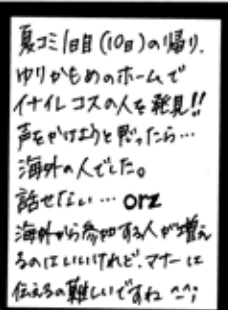 夏コミ1日目(10日)の帰り、
ゆりかもめのホームで
イナイレコスの人を発見!!
声をかけようと思ったら…
海外の人でした。
話せない… orz
海外から参加する人が増え
るのはいいけれど、マナーは
伝えるの難しいですね ^^;